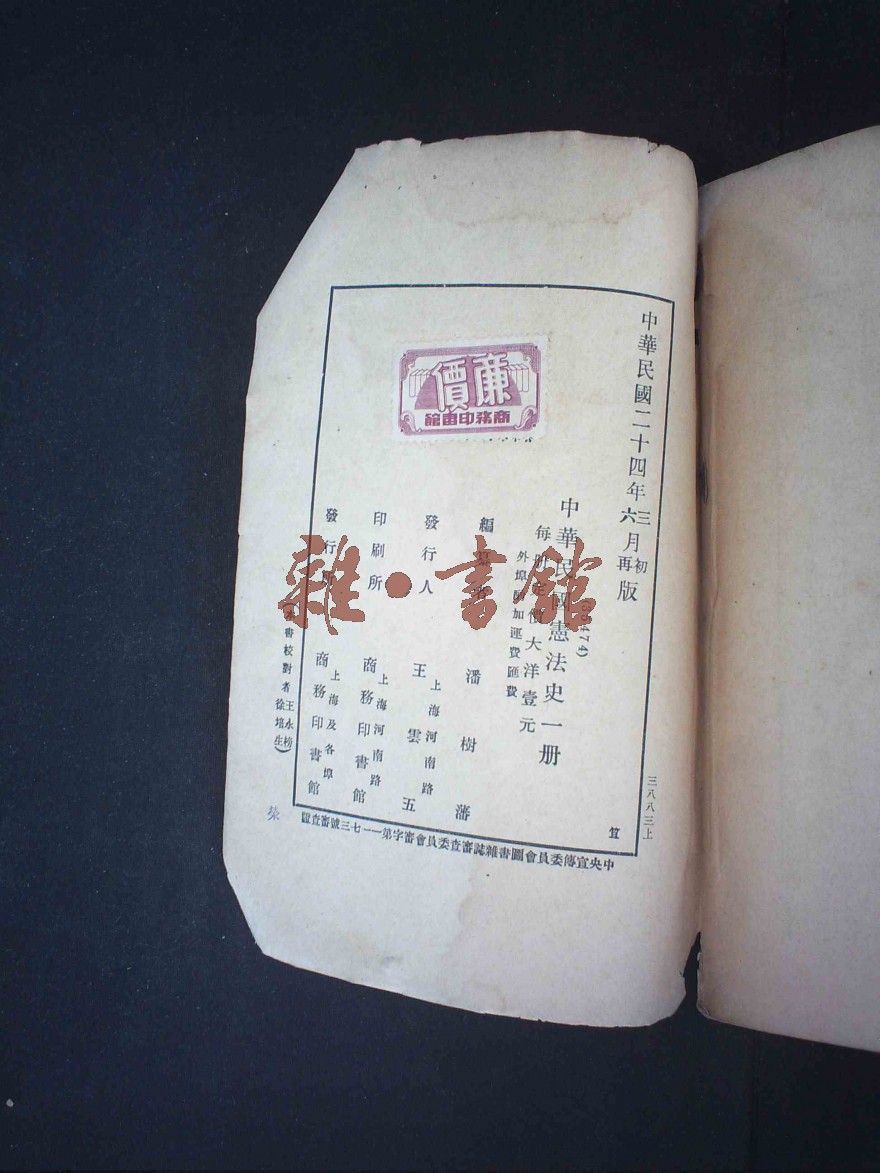 中華民國二十四年三月初版
六再
(35474)
中華民國憲法史一册
每册定價大洋壹元
外埠酌加運費匯費
編纂者 潘樹藩
發行人 王雲五
上海河南路
印刷所 商務印書館
上海河南路
發行所 商務印書館
上海及各埠
(本書校對者王永榜
徐培生)
廉價
商務印書館
三八八三上
中央宣傳委員會圖書雜誌審查委員會審字第一一七三號審查證
雜·書館